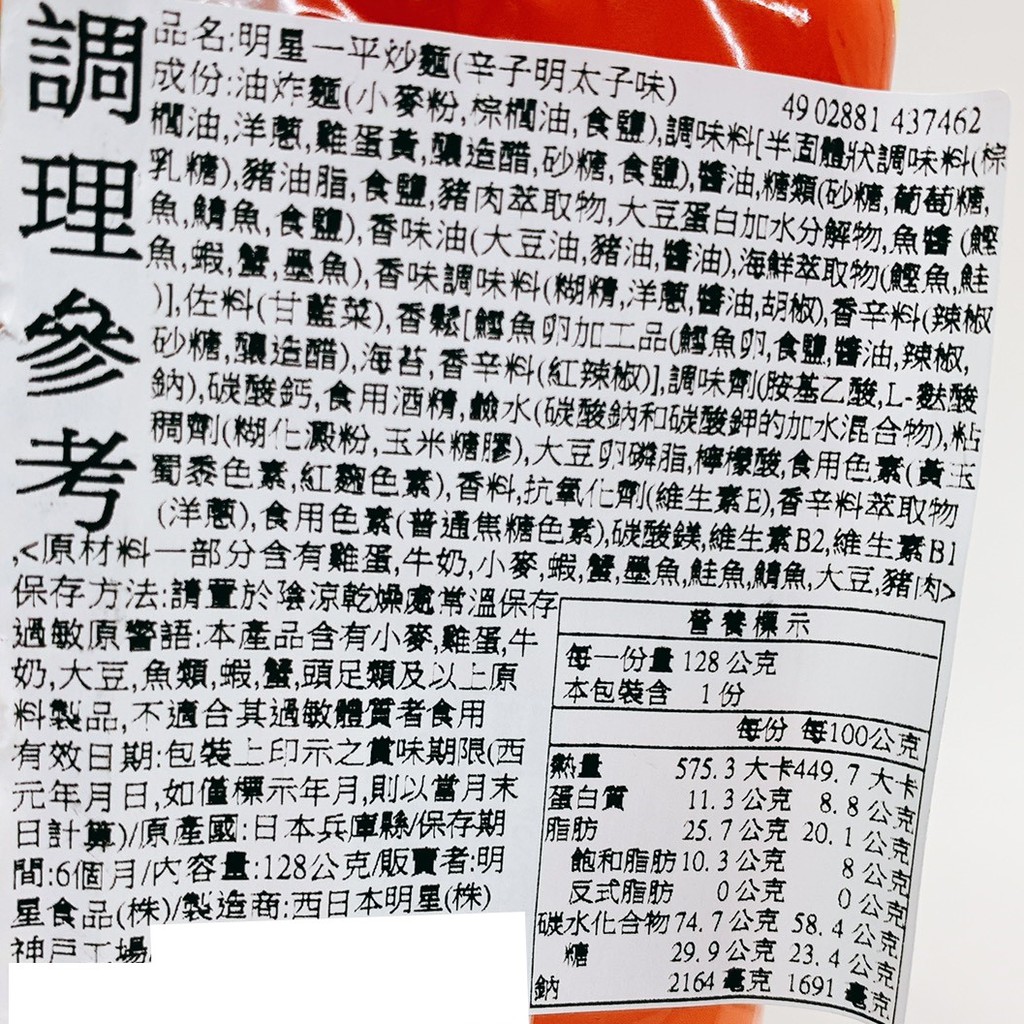 調理參考
品名:明星一平炒麵(辛子明太子味)
49 02881 437462
成份:油炸麵(小麥粉,棕櫚油,食鹽),調味料[半固體狀調味料(棕
櫚油,洋蔥,雞蛋黃,釀造醋,砂糖,食鹽),醬油,糖類(砂糖,葡萄糖,
乳糖),豬油脂,食鹽,豬肉萃取物,大豆蛋白加水分解物,魚醬(鰹
魚,鯖魚,食鹽),香味油(大豆油,豬油,醬油),海鮮萃取物(鰹魚,鮭
魚,蝦,蟹,墨魚),香味調味料(糊精,洋蔥,醬油,胡椒),香辛料(辣椒
)],佐料(甘藍菜),香鬆[鱈魚卵加工品(鱈魚卵,食鹽,醬油,辣椒,
砂糖,釀造醋),海苔,香辛料(紅辣椒)],調味劑(胺基乙酸,L-麩酸
鈉),碳酸鈣,食用酒精,鹼水(碳酸鈉和碳酸鉀的加水混合物),粘
稠劑(糊化澱粉,玉米糖膠),大豆卵磷脂,檸檬酸,食用色素(黃玉
蜀黍色素,紅麴色素),香料,抗氧化劑(維生素E),香辛料萃取物
(洋蔥),食用色素(普通焦糖色素),碳酸鎂,維生素B2,維生素B1
,<原材料一部分含有雞蛋,牛奶,小麥,蝦,蟹,墨魚,鮭魚,鯖魚,大豆,豬肉>
保存方法:請置於陰涼乾燥處常溫保存
過敏原警語:本產品含有小麥,雞蛋,牛
奶,大豆,魚類,蝦,蟹,頭足類及以上原
料製品,不適合其過敏體質者食用
有效日期:包裝上印示之賞味期限(西
元年月日,如僅標示年月,則以當月末
日計算)/原產國:日本兵庫縣/保存期
間:6個月/內容量:128公克/販賣者:明
星食品(株)/製造商:西日本明星(株)
神戸工場
營養標示
每一份量 128 公克
本包裝含 1 份
每份 每100公克
熱量 575.3 大卡 449.7 大卡
蛋白質 11.3 公克 8.8 公克
脂肪 25.7 公克 20.1 公克
飽和脂肪 10.3 公克 8 公克
反式脂肪 0 公克 0 公克
碳水化合物 74.7 公克 58.4 公克
糖 29.9 公克 23.4 公克
鈉 2164 毫克 1691 毫克